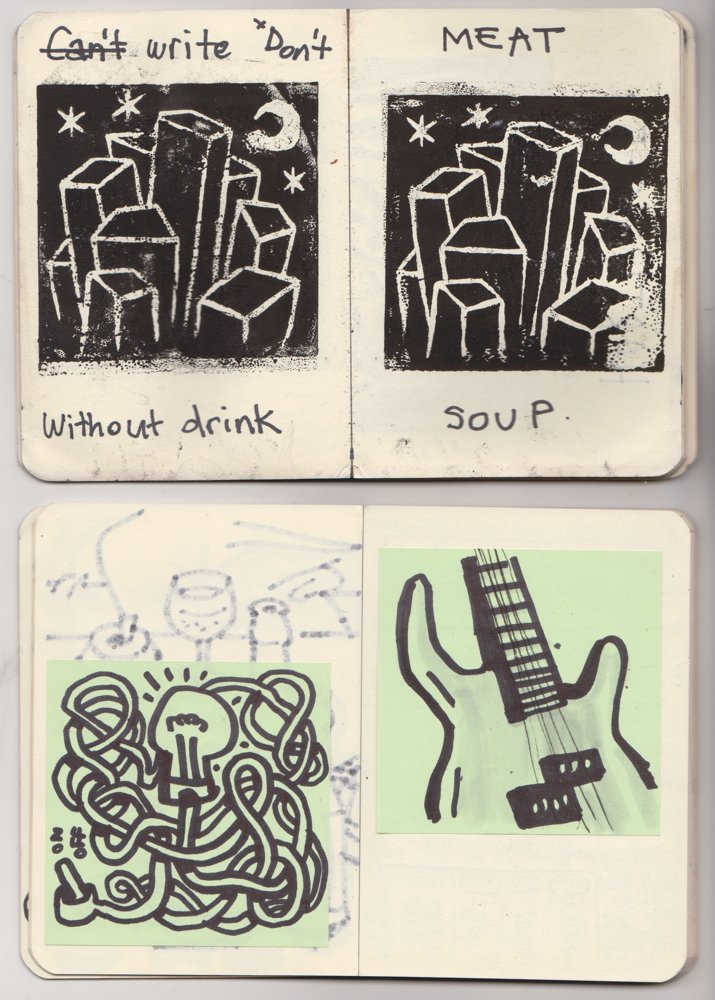 Can't write *Don't
Without drink
MEAT
SOUP.